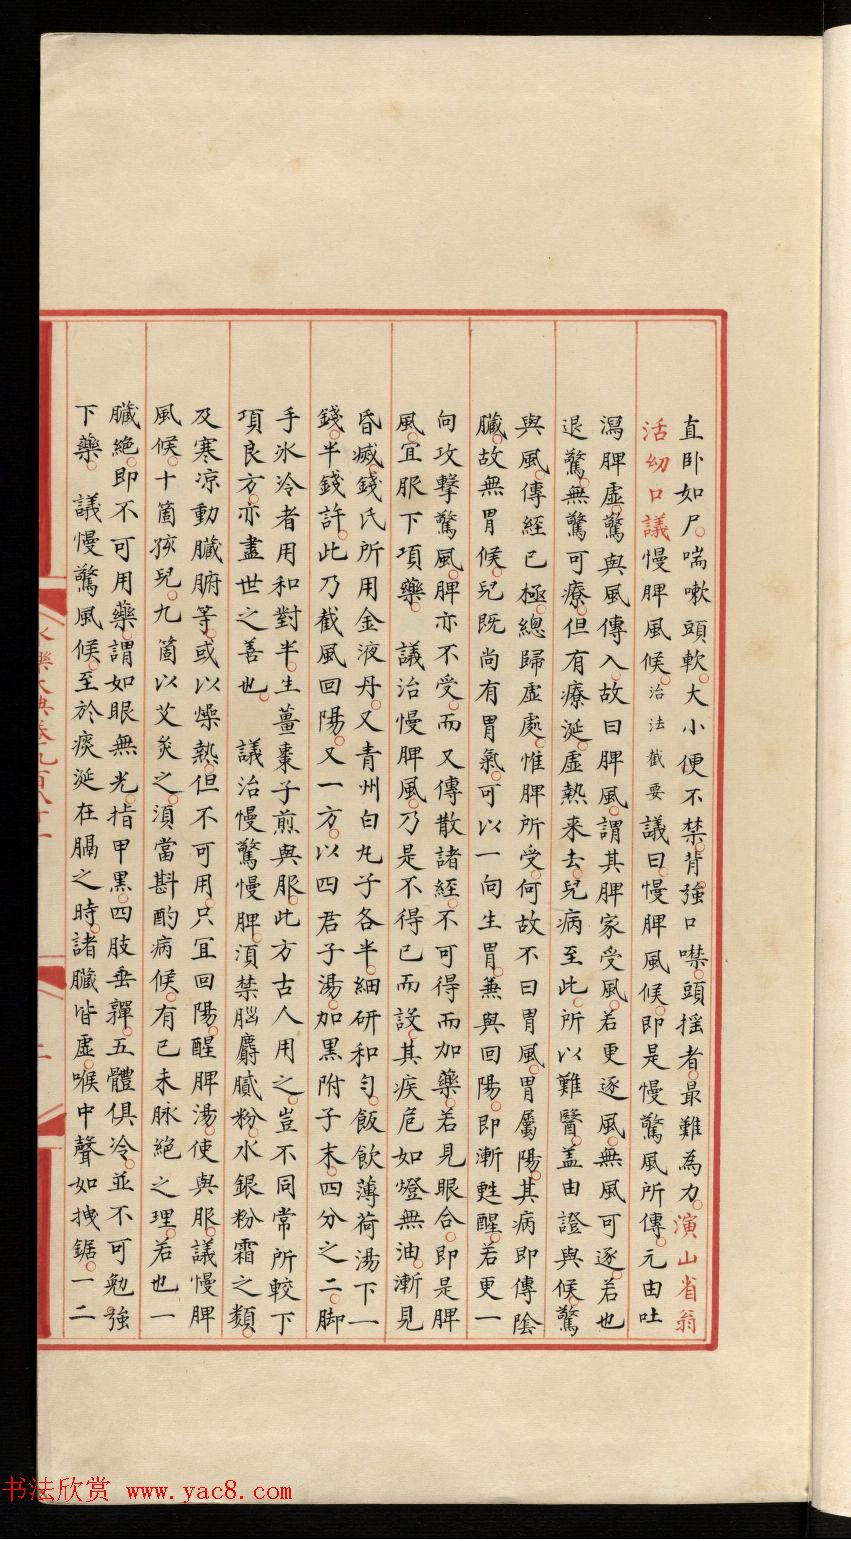 直卧如尸。喘嗽頭軟。大小便不禁。背強口噤。頭揺者。最難為力。演山省翁
活幼口議慢脾風候。治法截要議曰。慢脾風候。即是慢驚風所傳。元由吐
瀉脾虛。驚與風傳入。故曰脾風。謂其脾家受風。若更逐風。無風可逐。若也
退驚。無驚可療。但有療涎。虛熱来去。兒病至此。所以難醫。盖由證與候。驚
與風。傳經已極。總歸虛處。惟脾所受。何故不曰胃風。胃屬陽。其病即傳陰
臟。故無胃候。兒既尚有胃氣。可以一向生胃。兼與回陽。即漸甦醒。若更一
向攻擊驚風。脾亦不受。而又傳散諸經。不可得而加藥。若見眼合。即是脾
風。宜服下項藥。 議治慢脾風。乃是不得已而設。其疾危如燈無油。漸見
昏滅。錢氏所用金液丹。又青州白丸子各半。細研和勻。飯飲薄荷湯下一
錢。半錢許。此乃截風回陽。又一方。以四君子湯。加黑附子末。四分之二。脚
手氷冷者用和對半。生薑棗子煎與服。此方古人用之。豈不同常所較下
項良方。亦盡世之善也。 議治慢驚慢脾。湏禁腦麝膩粉。水銀粉霜之類。
及寒凉動臟腑等。或以燥熱。但不可用。只宜回陽。醒脾湯。使與服。議慢脾
風候。十箇孩兒。九箇以艾灸之。湏當斟酌病候。有已未脉絶之理。若也一
臟絶。即不可用藥。謂如眼無光。指甲黑。四肢垂嚲。五體俱冷。並不可勉強
下藥。 議慢驚風候。至於痰涎在膈之時。諸臟皆虛。喉中聲如拽鋸。一二
永樂大典卷九百八十一
二
书法欣赏 www.yac8.com